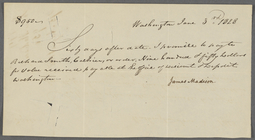 $950
Washington June 3rd 1828
Sixty days after date I promise to pay to
Richard Smith, Cashier, or order, Nine hundred & fifty dollars
for value received, payable at the office of discount & deposit
Washington.
James Madison